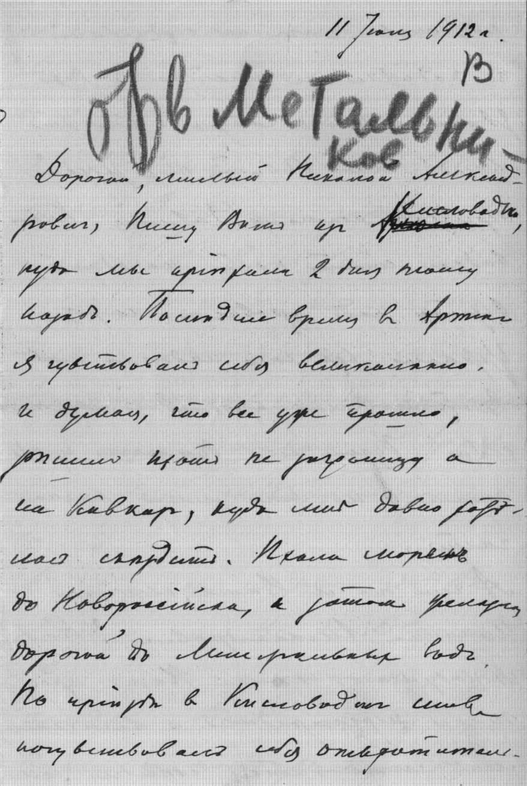 11 Июля 1912 г.
В
отв Метальни-
ков
Дорогой, милый Николай Александ-
рович, Пишу Вамъ изъ Кисловодска,
куда мы пріѣхали 2 дня тому
назадъ. Последнее время в Артеке
я чувствовалъ себя великолепно.
и думая, что все уже прошло,
рѣшилъ ехать не заграницу а
на Кавказъ, куда мнѣ давно хотѣ-
лось съѣздить. Ехали моремъ
до Новороссійска, а затѣмъ железн.
дорогой до Минеральныхъ водъ.
По пріѣздѣ в Кисловодскъ снова
почувствовалъ себя отвратитель-